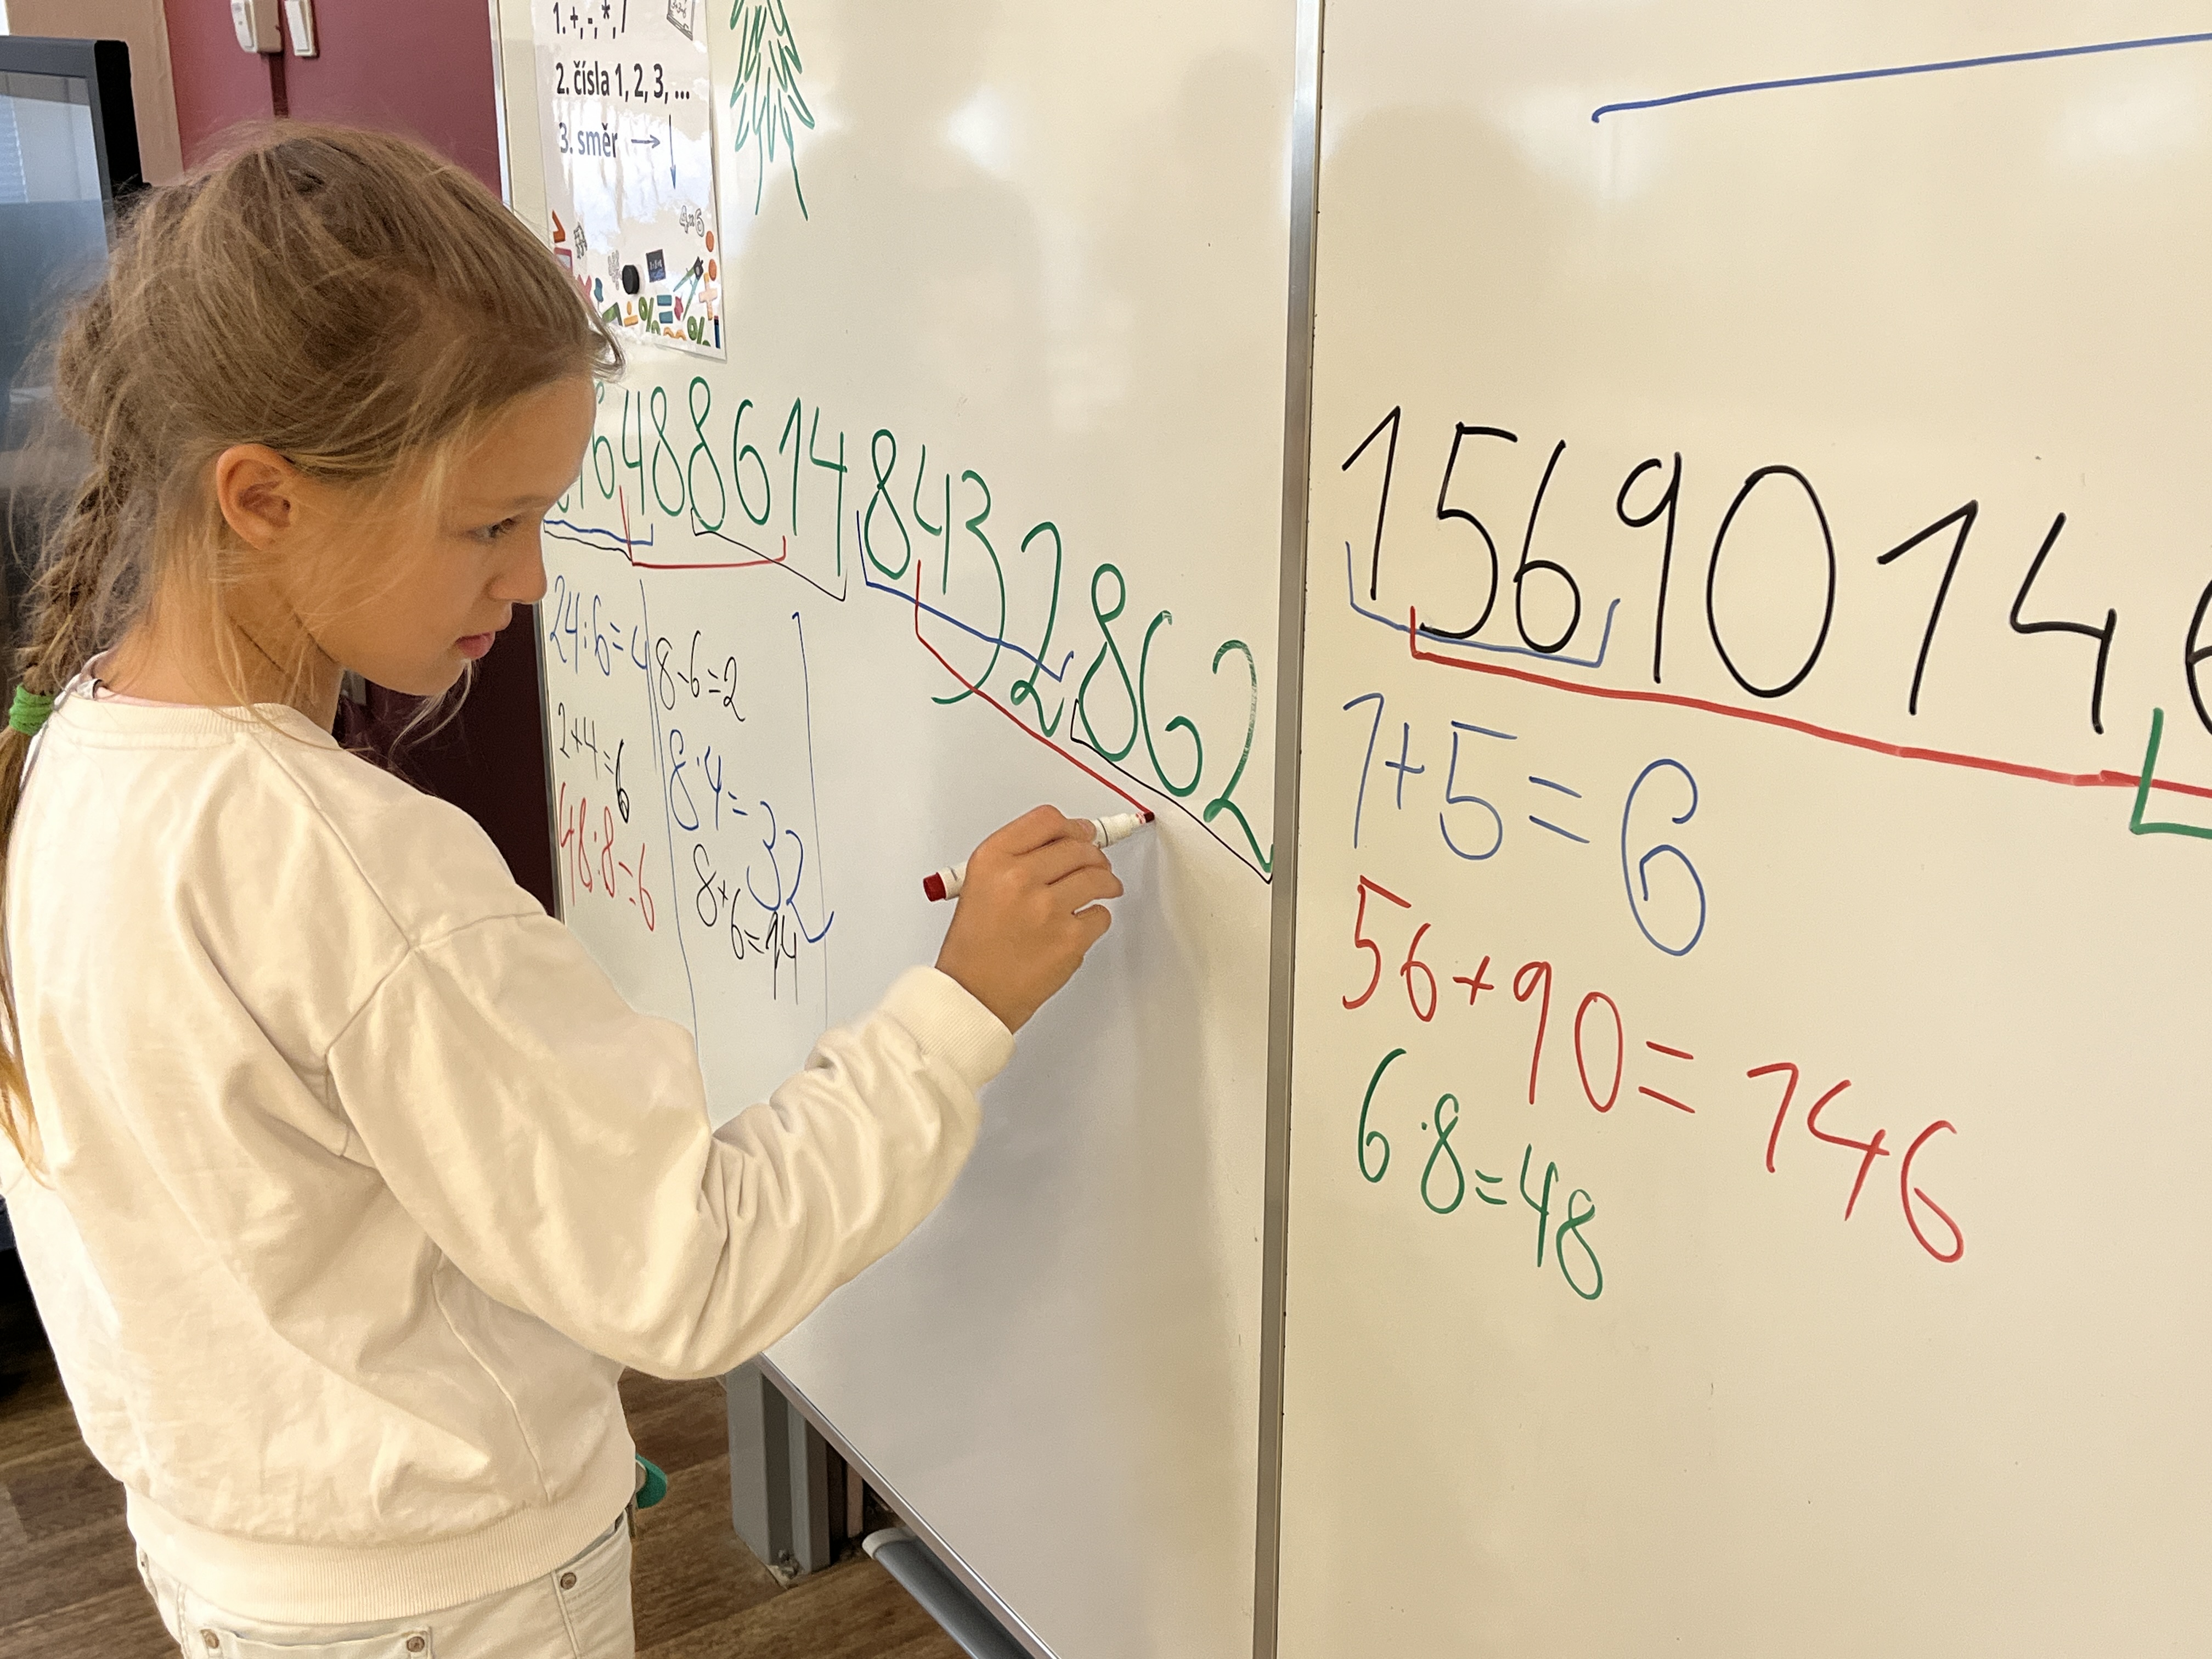 1. +, -, *, /
2. čísla 1, 2, 3, ...
3. směr → ↓
6488614843 2862
24:6=4
2+4=6
48:8=6
8-6=2
8·4=32
8+6=14
1569014
1+5=6
56+90=146
6·8=48